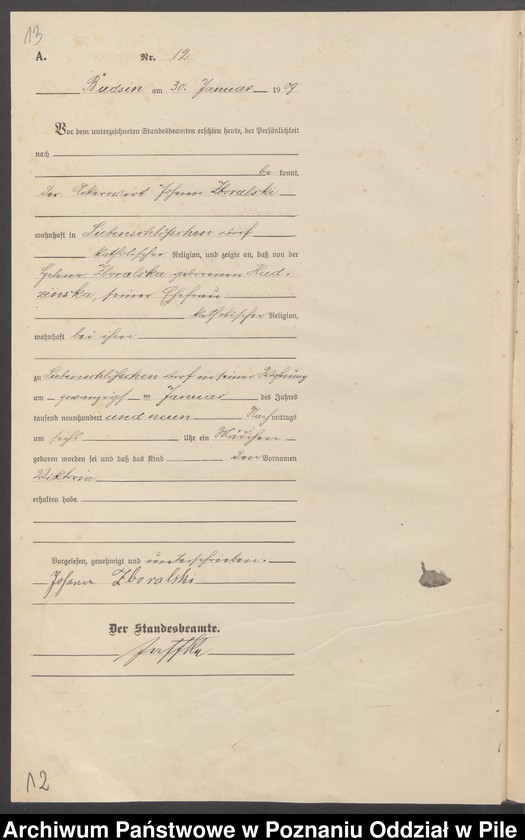 13
A. Nr. 12
Budsin am 30. Januar 1909
Vor dem unterzeichneten Standesbeamten erschien heute, der Persönlichkeit
nach
be kannt,
der Ackerwirt Johann Zboralski
wohnhaft in Siebenschlößchen Dorf
katholischer Religion, und zeigte an, daß von der
Helene Zboralska geborenen Hud-
zinska, seiner Ehefrau
katholischer Religion,
wohnhaft bei ihm
zu Siebenschlößchen Dorf in seiner Wohnung
am zwanzigsten Januar des Jahres
tausend neunhundert und neun Nachmittags
um Uhr ein Mädchen
geboren worden sei und daß das Kind den Vornamen
Viktoria
erhalten habe.
Vorgelesen, genehmigt und unterschrieben.
Johann Zboralski
Der Standesbeamte.
12
Archiwum Państwowe w Poznaniu Oddział w Pile